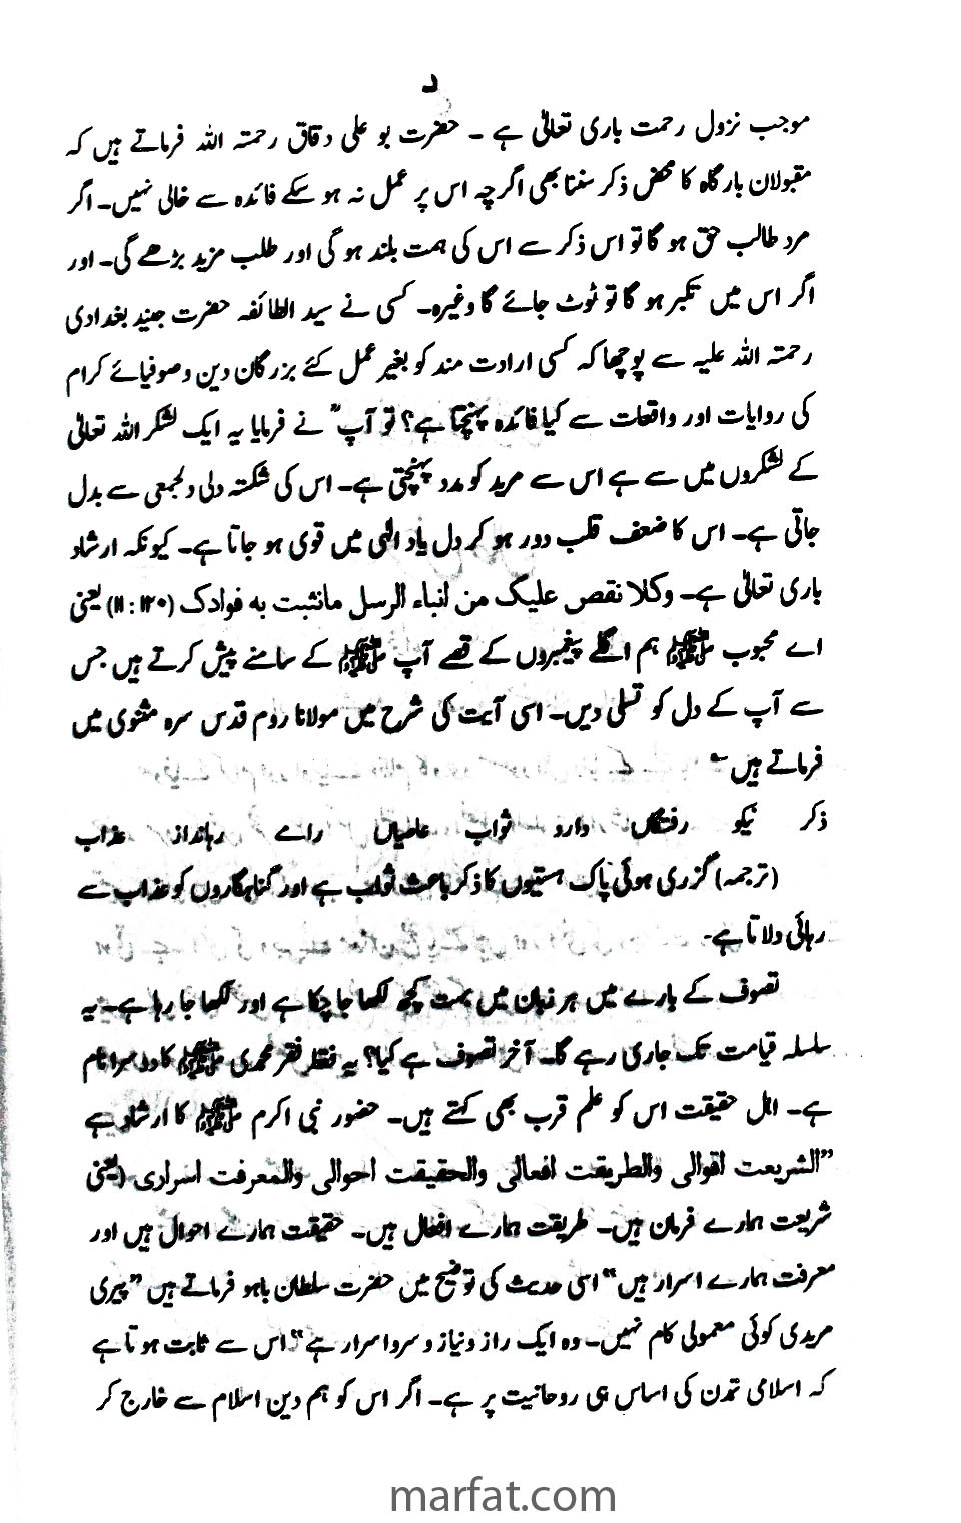 د
موجب نزول رحمت باری تعالیٰ ہے ۔ حضرت بو علی دقاق رحمتہ اللہ فرماتے ہیں کہ
مقبولان بارگاہ کا محض ذکر سننا بھی اگرچہ اس پر عمل نہ ہو سکے فائدہ سے خالی نہیں۔ اگر
مرد طالب حق ہو گا تو اس ذکر سے اس کی ہمت بلند ہو گی اور طلب مزید بڑھے گی۔ اور
اگر اس میں تکبر ہو گا تو ٹوٹ جائے گا وغیرہ۔ کسی نے سید الطائفہ حضرت جنید بغدادی
رحمتہ اللہ علیہ سے پوچھا کہ کسی ارادت مند کو بغیر عمل کئے بزرگان دین و صوفیائے کرام
کی روایات اور واقعات سے کیا فائدہ پہنچتا ہے؟ تو آپؒ نے فرمایا یہ ایک لشکر اللہ تعالیٰ
کے لشکروں میں سے ہے اس سے مرید کو مدد پہنچتی ہے۔ اس کی شکستہ دلی دلجمعی سے بدل
جاتی ہے۔ اس کا ضعف قلب دور ہو کر دل یاد الٰہی میں قوی ہو جاتا ہے۔ کیونکہ ارشاد
باری تعالیٰ ہے۔ وکلا نقص علیک من انباء الرسل مانثبت به فوادک (۱۲۰ : ۱۱) یعنی
اے محبوب ﷺ ہم اگلے پیغمبروں کے قصے آپ ﷺ کے سامنے پیش کرتے ہیں جس
سے آپ کے دل کو تسلی دیں۔ اسی آیت کی شرح میں مولانا روم قدس سرہ مثنوی میں
فرماتے ہیں ؎
ذکر نیکو رفتگاں دارد ثواب عاصیاں راے رہانداز عذاب
(ترجمہ) گزری ہوئی پاک ہستیوں کا ذکر باعث ثواب ہے اور گناہگاروں کو عذاب سے
رہائی دلاتا ہے۔
تصوف کے بارے میں ہر زبان میں بہت کچھ لکھا جا چکا ہے اور لکھا جا رہا ہے۔ یہ
سلسلہ قیامت تک جاری رہے گا۔ آخر تصوف ہے کیا؟ یہ فقط فقر محمدی ﷺ کا دوسرا نام
ہے۔ اہل حقیقت اس کو علم قرب بھی کہتے ہیں۔ حضور نبی اکرم ﷺ کا ارشاد ہے
”الشریعت اقوالی والطریقت افعالی والحقیقت احوالی والمعرفت اسراری (یعنی
شریعت ہمارے فرمان ہیں۔ طریقت ہمارے افعال ہیں۔ حقیقت ہمارے احوال ہیں اور
معرفت ہمارے اسرار ہیں“ اسی حدیث کی توضیح میں حضرت سلطان باہو فرماتے ہیں ”پیری
مریدی کوئی معمولی کام نہیں۔ وہ ایک راز و نیاز و سرو اسرار ہے“ اس سے ثابت ہوتا ہے
کہ اسلامی تمدن کی اساس ہی روحانیت پر ہے۔ اگر اس کو ہم دین اسلام سے خارج کر
marfat.com